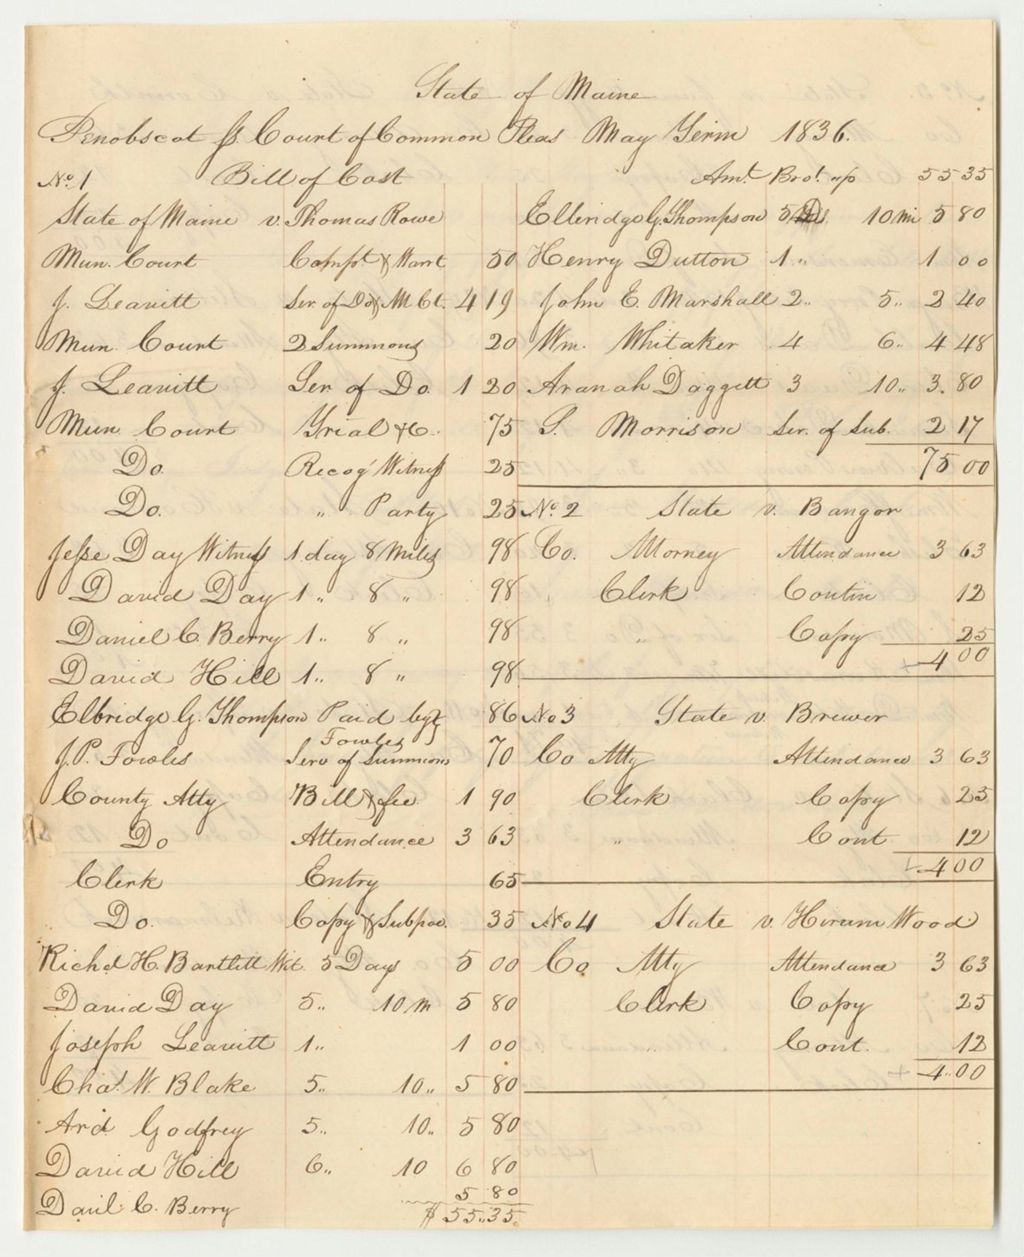 State of Maine
Penobscot ss Court of Common Pleas May Term 1836.
No. 1 Bill of Cost
State of Maine v. Thomas Rowe
Mun. Court Compt & Warrt 50
J. Leavitt Ser. of Do & M. Ct. 4 19
Mun. Court 2 Summons 20
J. Leavitt Ser of Do. 1 20
Mun. Court Trial &c. 75
Do. Recog Witness 25
Do. " Party 25
Jesse Day Witness 1 day 8 Miles 98
David Day 1 " 8 " 98
Daniel C. Berry 1 " 8 " 98
David Hill 1 " 8 " 98
Elbridge G. Thompson Paid by J. Fowles 86
J. P. Fowles Serv of Summons 70
County Atty Bill & fee 1 90
Do Attendance 3 63
Clerk Entry 65
Do. Copy & Subpoe. 35
Richd H. Bartlett Wit. 5 Days 5 00
David Day 5 " 10 m 5 80
Joseph Leavitt 1 " 1 00
Chas. W. Blake 5 " 10 " 5 80
Ard Godfrey 5 " 10 " 5 80
David Hill 6 " 10 6 80
Danl. C. Berry 5 80
$ 55..35
Amt. Brot. up 55 35
Elbridge G. Thompson 5 Ds 10 mi 5 80
Henry Dutton 1 " 1 00
John E. Marshall 2 " 5 " 2 40
Wm. Whitaker 4 6 " 4 48
Aranah Doggett 3 10 " 3. 80
S. Morrison Ser. of Sub. 2 17
75 00
No. 2 State v. Bangor
Co. Attorney Attendance 3 63
Clerk Contin 12
" Copy 25
4 00
No 3 State v. Brewer
Co Atty Attendance 3 63
Clerk Copy 25
" Cont 12
4 00
No 4 State v. Hiram Wood
Co Atty Attendance 3 63
Clerk Copy 25
" Cont. 12
4.00